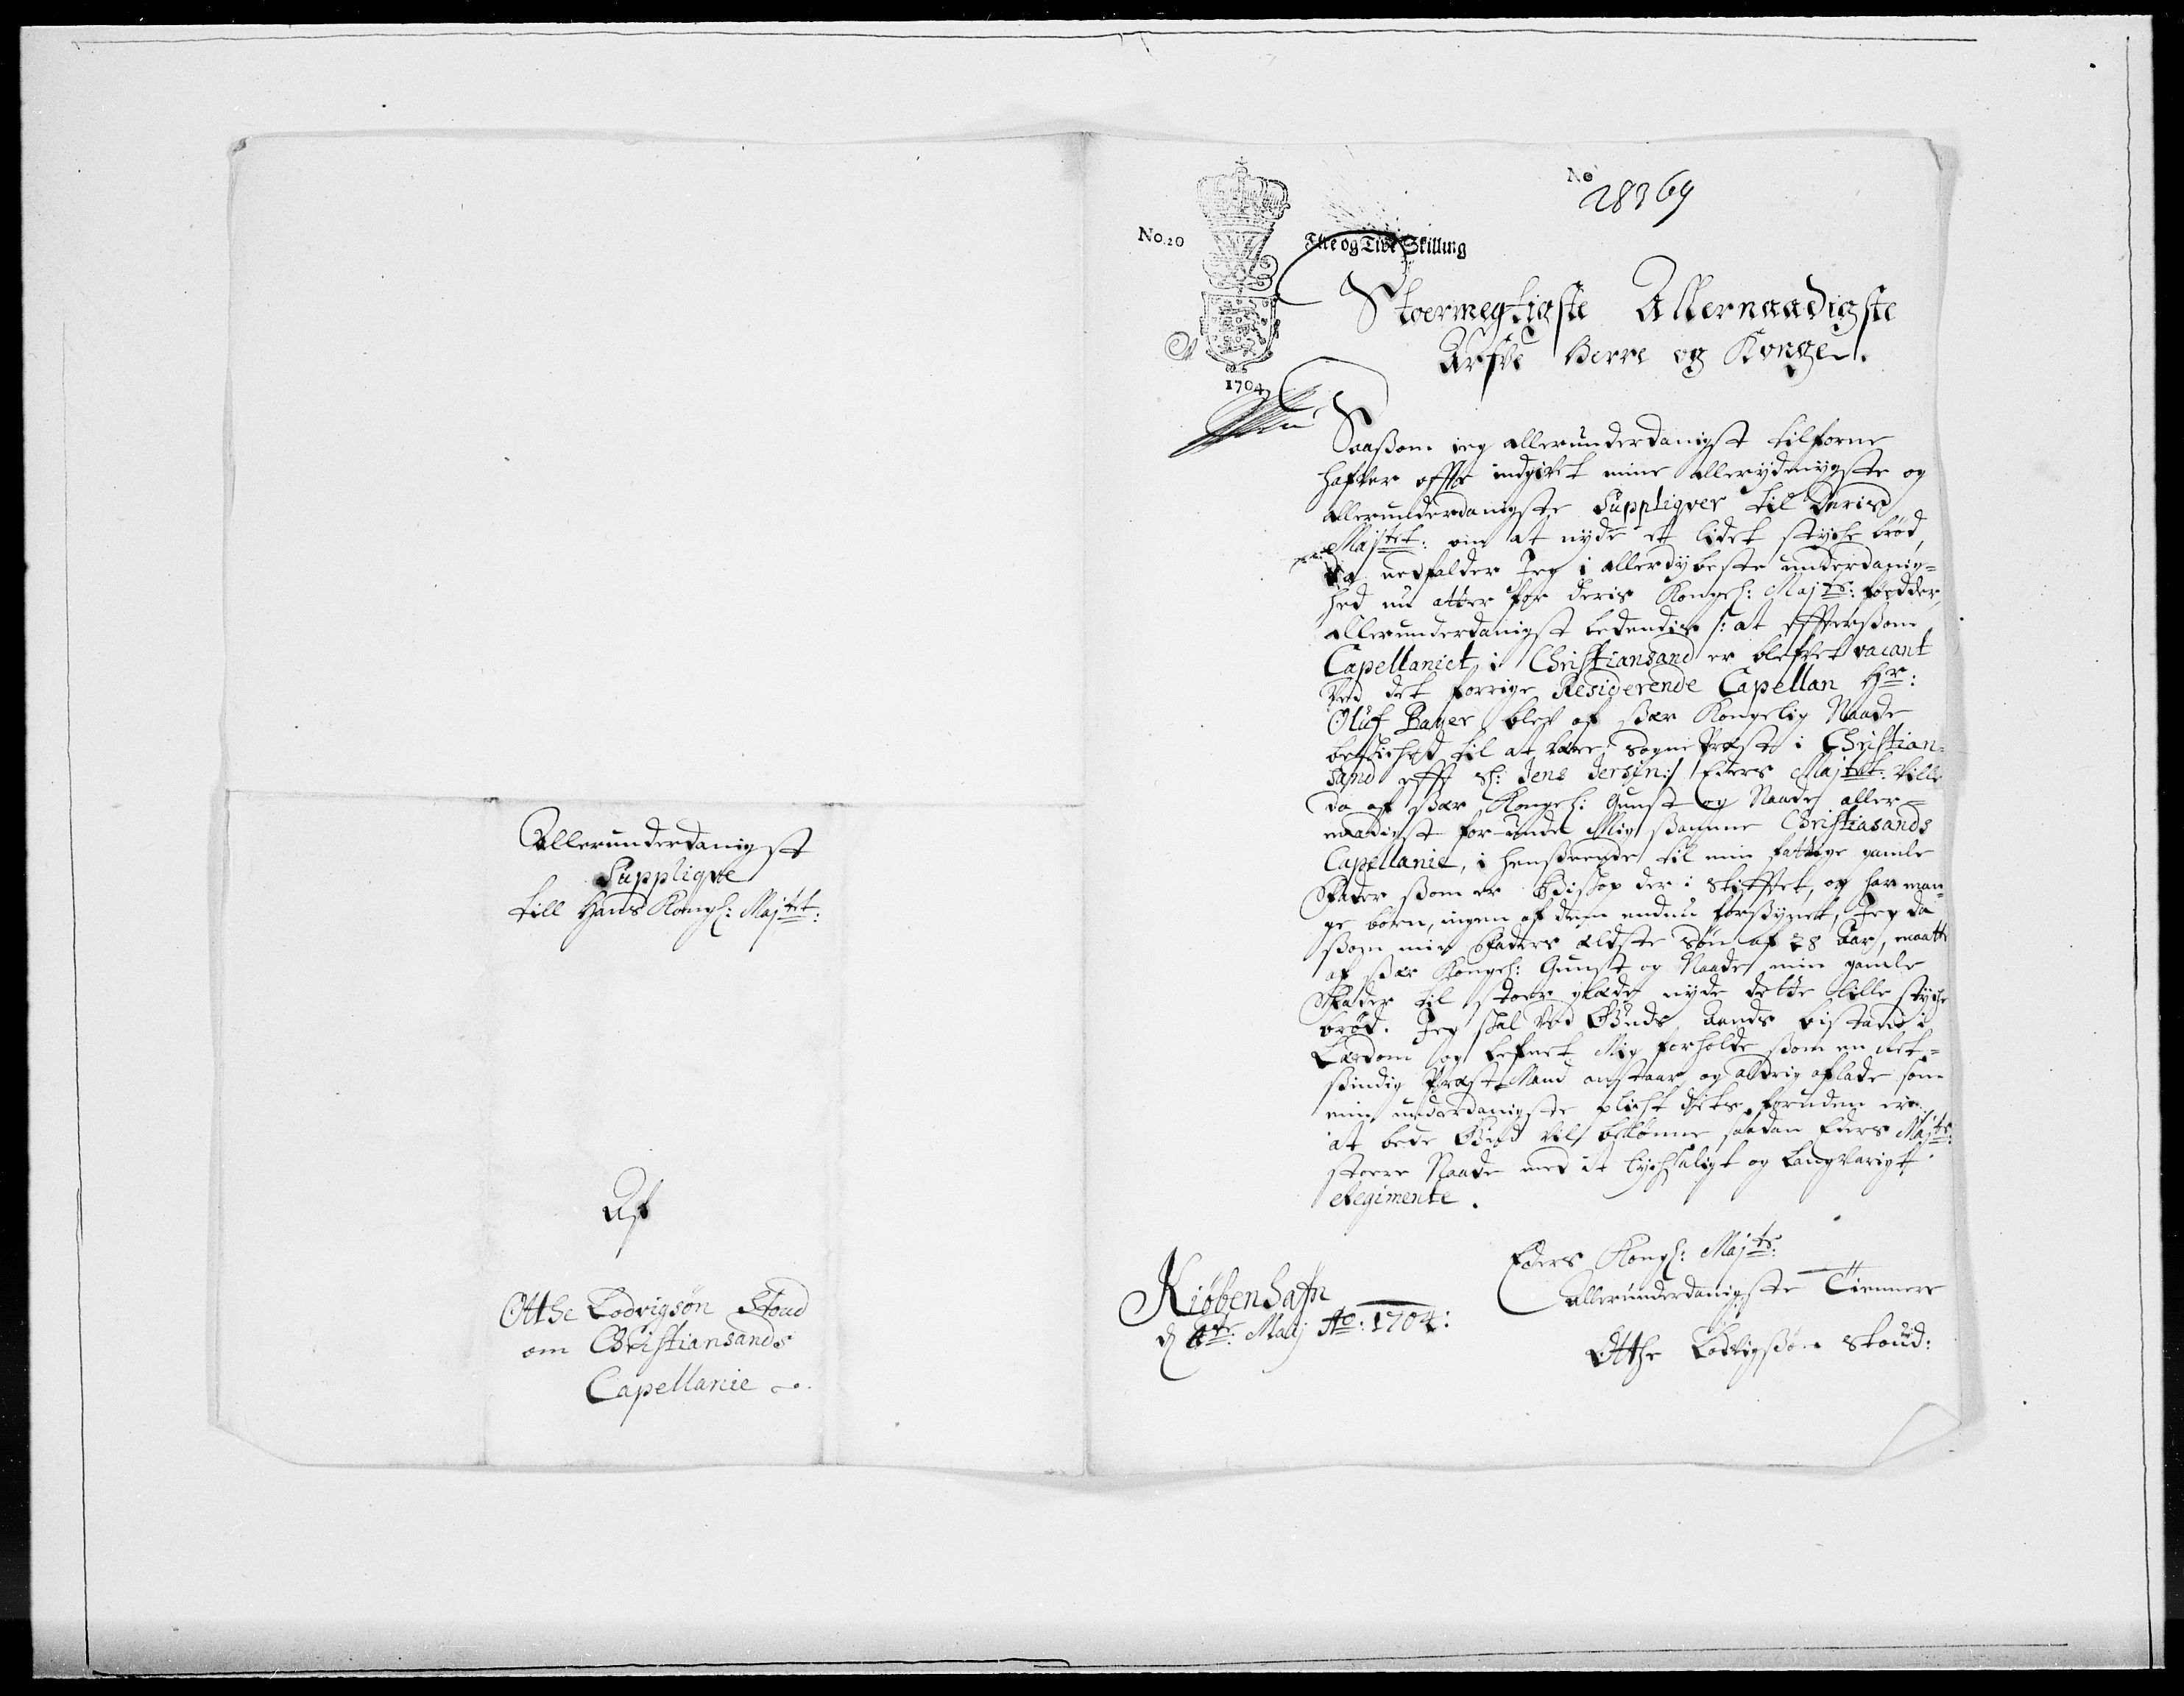 Allerunderdanigst
Suppliqve
till Hans Kongl: Majtet:
Af
Otthe Lodvigsøn Stoud
om Christiansands
Capellanie
No
28369
No. 20
Fire og Tive Skilling
1704
Stoermegtigste Allernaadigste
Arfve Herre og Konge.
Saasom ieg allerunderdanigst tilforne
hafver offte indgivet mine allerydmygste og
allerunderdanigste Suppliqver til Deris
Majtet: om at nyde et lidet støche brød,
Da nedfalder Jeg i allerdybeste underdanig=
hed nu atter for Deris Kongel: Majts: fødder,
allerunderdanigst bedendis /: at effterssom
Capellaniet i Christiansand er blefvet vacant
Ved det forrige Residerende Capellan Hr:
Oluf Bager blef af sær Kongelig Naade
beskichet til at være Sogne Præst i Christian=
sand efft Sl: Jens Jersin:/ Eders Majtet: Ville
da af sær Kongel: Gunst og Naade aller=
naadigst for-unde Mig samme Christiasands
Capellanie, i henseende til min fattige gamle
Fader som er Bisshop der i Stifftet, og har man=
ge børn, ingen af dem endnu forsynet, Jeg da
ssom min Faders ældste Søn af 28 Aar, maatte
af sær Kongel: Gunst og Naade min gamle
Fader til stoer glæde nyde dette lille støche
brød. Jeg skal Ved Guds Aands bistand i
Lærdom og Lefnet Mig forholde som en ret=
sindig Præste Mand anstaar og aldrig aflade som
min underdanigste plicht foruden er
at bede Gud vil belønne saadan Eders Majts:
stoere Naade med it lychsaligt og Langvarigt
Regimente.
Eders Kongl: Majts:
Allerunderdanigste Tiennere
Kiøbenhafn
d 4de: Maij Ao: 1704:
Otthe Lodvigssøn Stoud: